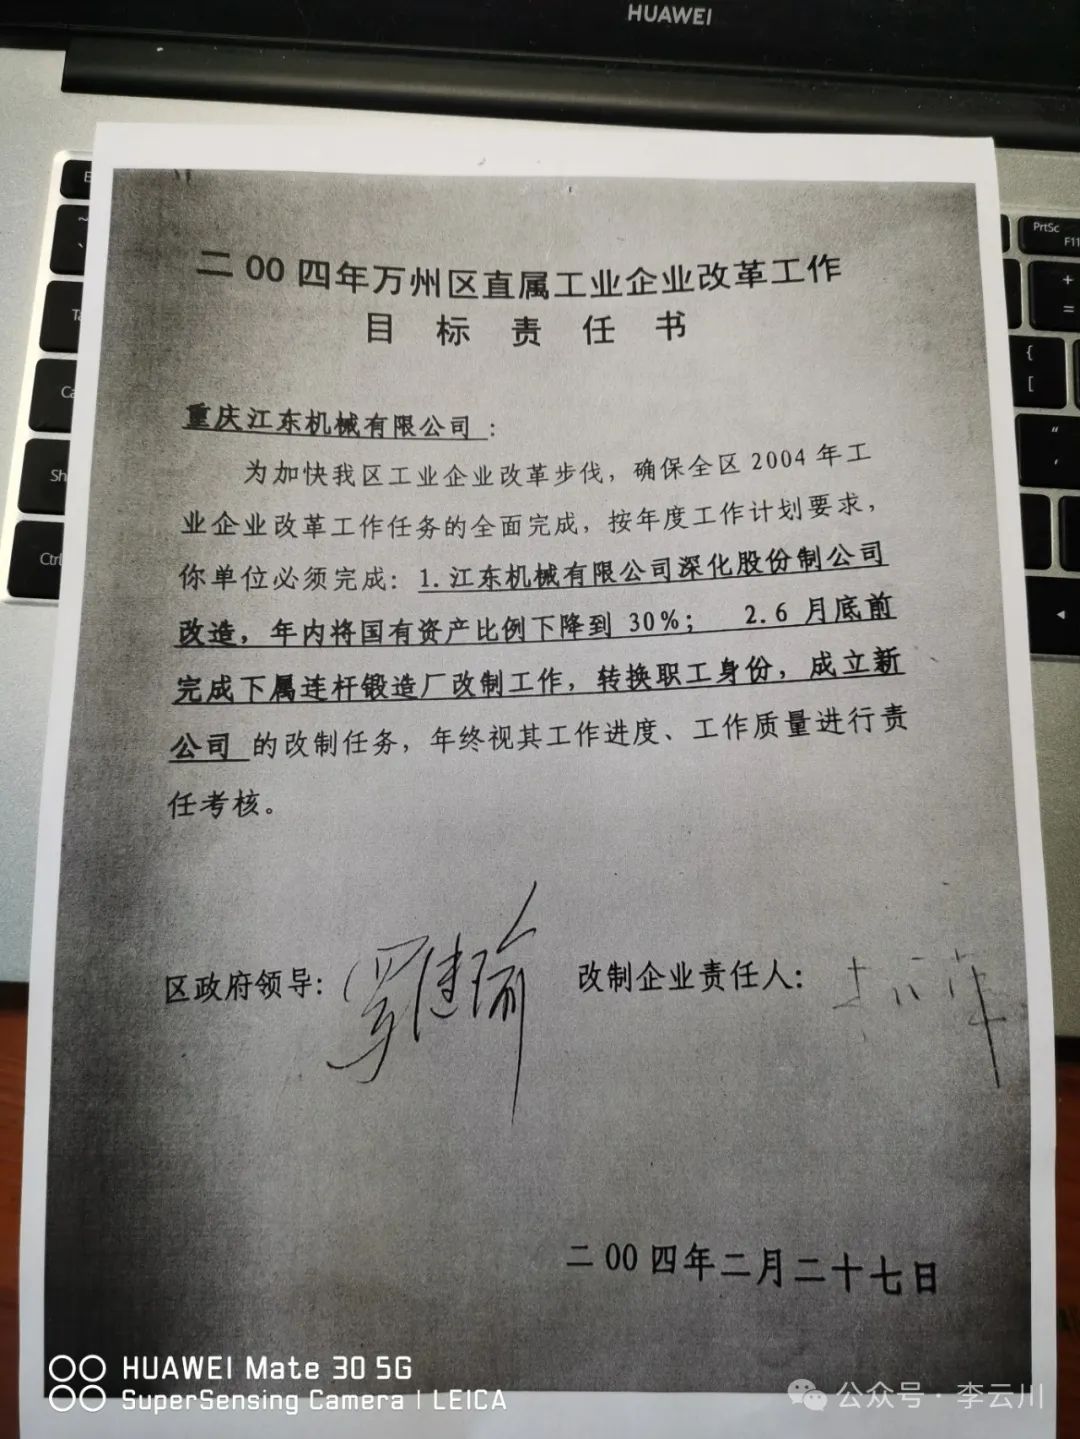 HUAWEI
PrtSc
F11
二00四年万州区直属工业企业改革工作
目标责任书
重庆江东机械有限公司：
为加快我区工业企业改革步伐，确保全区2004年工
业企业改革工作任务的全面完成，按年度工作计划要求，
你单位必须完成：1.江东机械有限公司深化股份制公司
改造，年内将国有资产比例下降到 30%； 2.6月底前
完成下属连杆锻造厂改制工作，转换职工身份，成立新
公司 的改制任务，年终视其工作进度、工作质量进行责
任考核。
区政府领导：罗健瑜 改制企业责任人：
二00四年二月二十七日
HUAWEI Mate 30 5G
SuperSensing Camera | LEICA
公众号·李云川